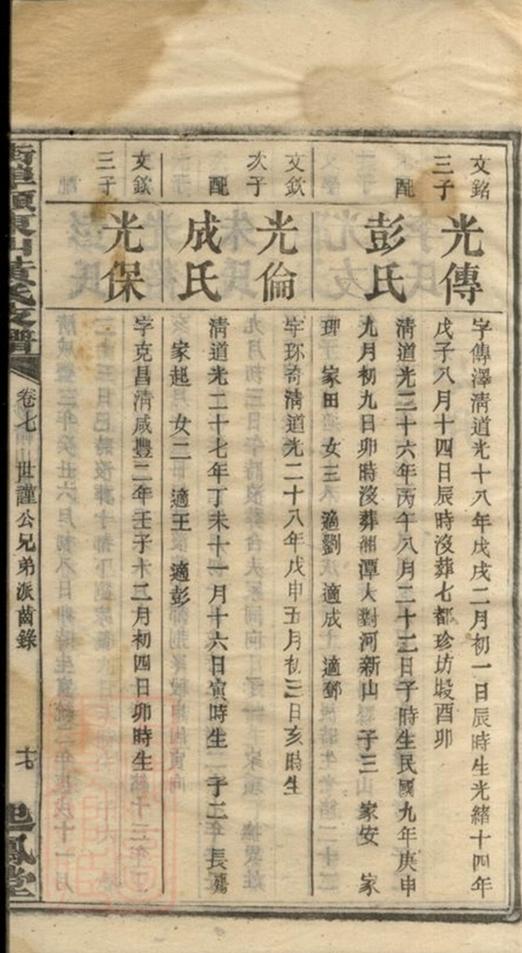 文銘三子
光傳
字傳澤清道光十八年戊戌二月初一日辰時生光緒十四年
戊子八月十四日辰時沒葬七都珍坊塅酉卯
配
彭氏
清道光二十六年丙午八月二十三日子時生民國九年庚申
九月初九日卯時沒葬湘潭人對河新山 子三 家安 家
理 家田 女三 適劉 適成 適鄧
文欽次子
光倫
字珎奇清道光二十八年戊申五月初三日亥時生
配
成氏
清道光二十七年丁未十一月十六日寅時生 子二 長殤
家起 女二 適王 適彭
文欽三子
光保
字克昌清咸豐二年壬子十二月初四日卯時生
黃氏支譜
卷七 世謹公兄弟派齒錄